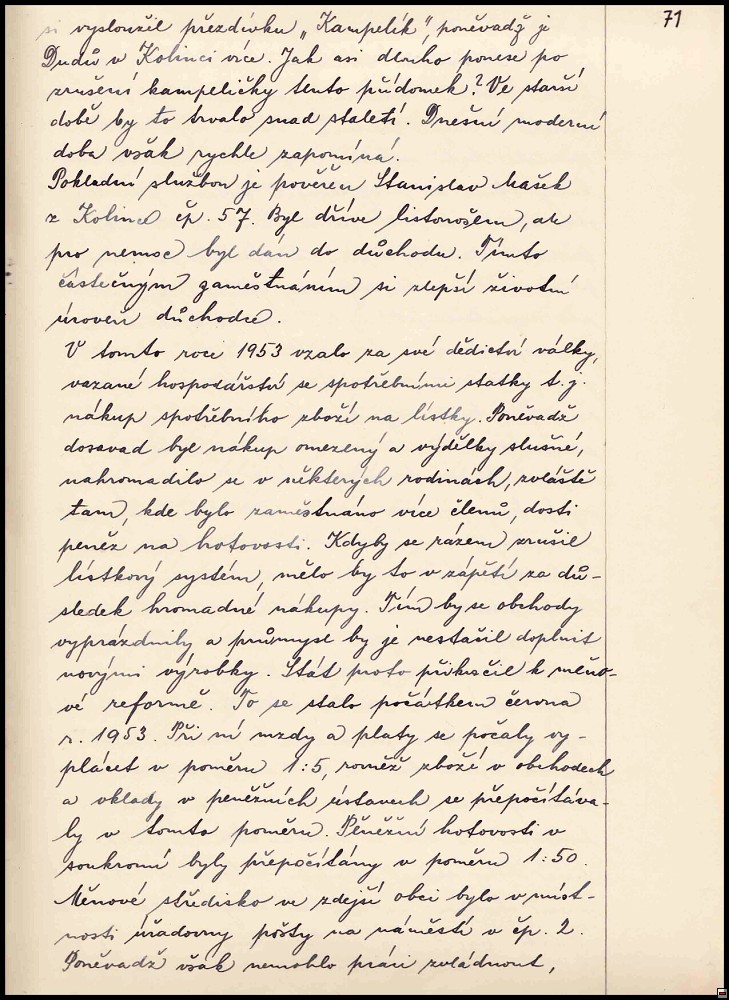 71
si vysloužil přezdívku „Kampelík", poněvadž je
Dudů v Kolinci více. Jak asi dlouho ponese po
zrušení kampeličky tento přídomek? Ve starší
době by to trvalo snad staletí. Dnešní moderní
doba však rychle zapomíná.
Pokladní službou je pověřen Stanislav Mašek
z Kolince čp. 57. Byl dříve listonošem, ale
pro nemoc byl dán do důchodu. Tímto
částečným zaměstnáním si zlepší životní
úroveň důchodce.
V tomto roce 1953 vzalo za své dědictví války,
vázané hospodářství se spotřebními statky t. j.
nákup spotřebního zboží na lístky. Poněvadž
dosavad byl nákup omezený a výdělky slušné,
nahromadilo se v některých rodinách, zvláště
tam, kde bylo zaměstnáno více členů, dosti
peněz na hotovosti. Kdyby se rázem zrušil
lístkový systém, mělo by to v zápětí za dů-
sledek hromadné nákupy. Tím by se obchody
vyprázdnily a průmysl by je nestačil doplnit
novými výrobky. Stát proto přikročil k měno-
vé reformě. To se stalo počátkem června
r. 1953. Při ní mzdy a platy se počaly vy-
plácet v poměru 1:5, rovněž zboží v obchodech
a vklady v peněžních ústavech se přepočítáva-
ly v tomto poměru. Peněžní hotovosti v
soukromí byly přepočítány v poměru 1:50.
Měnové středisko ve zdejší obci bylo v míst-
nosti úřadovny pošty na náměstí v čp. 2.
Poněvadž však nemohlo práci zvládnout,